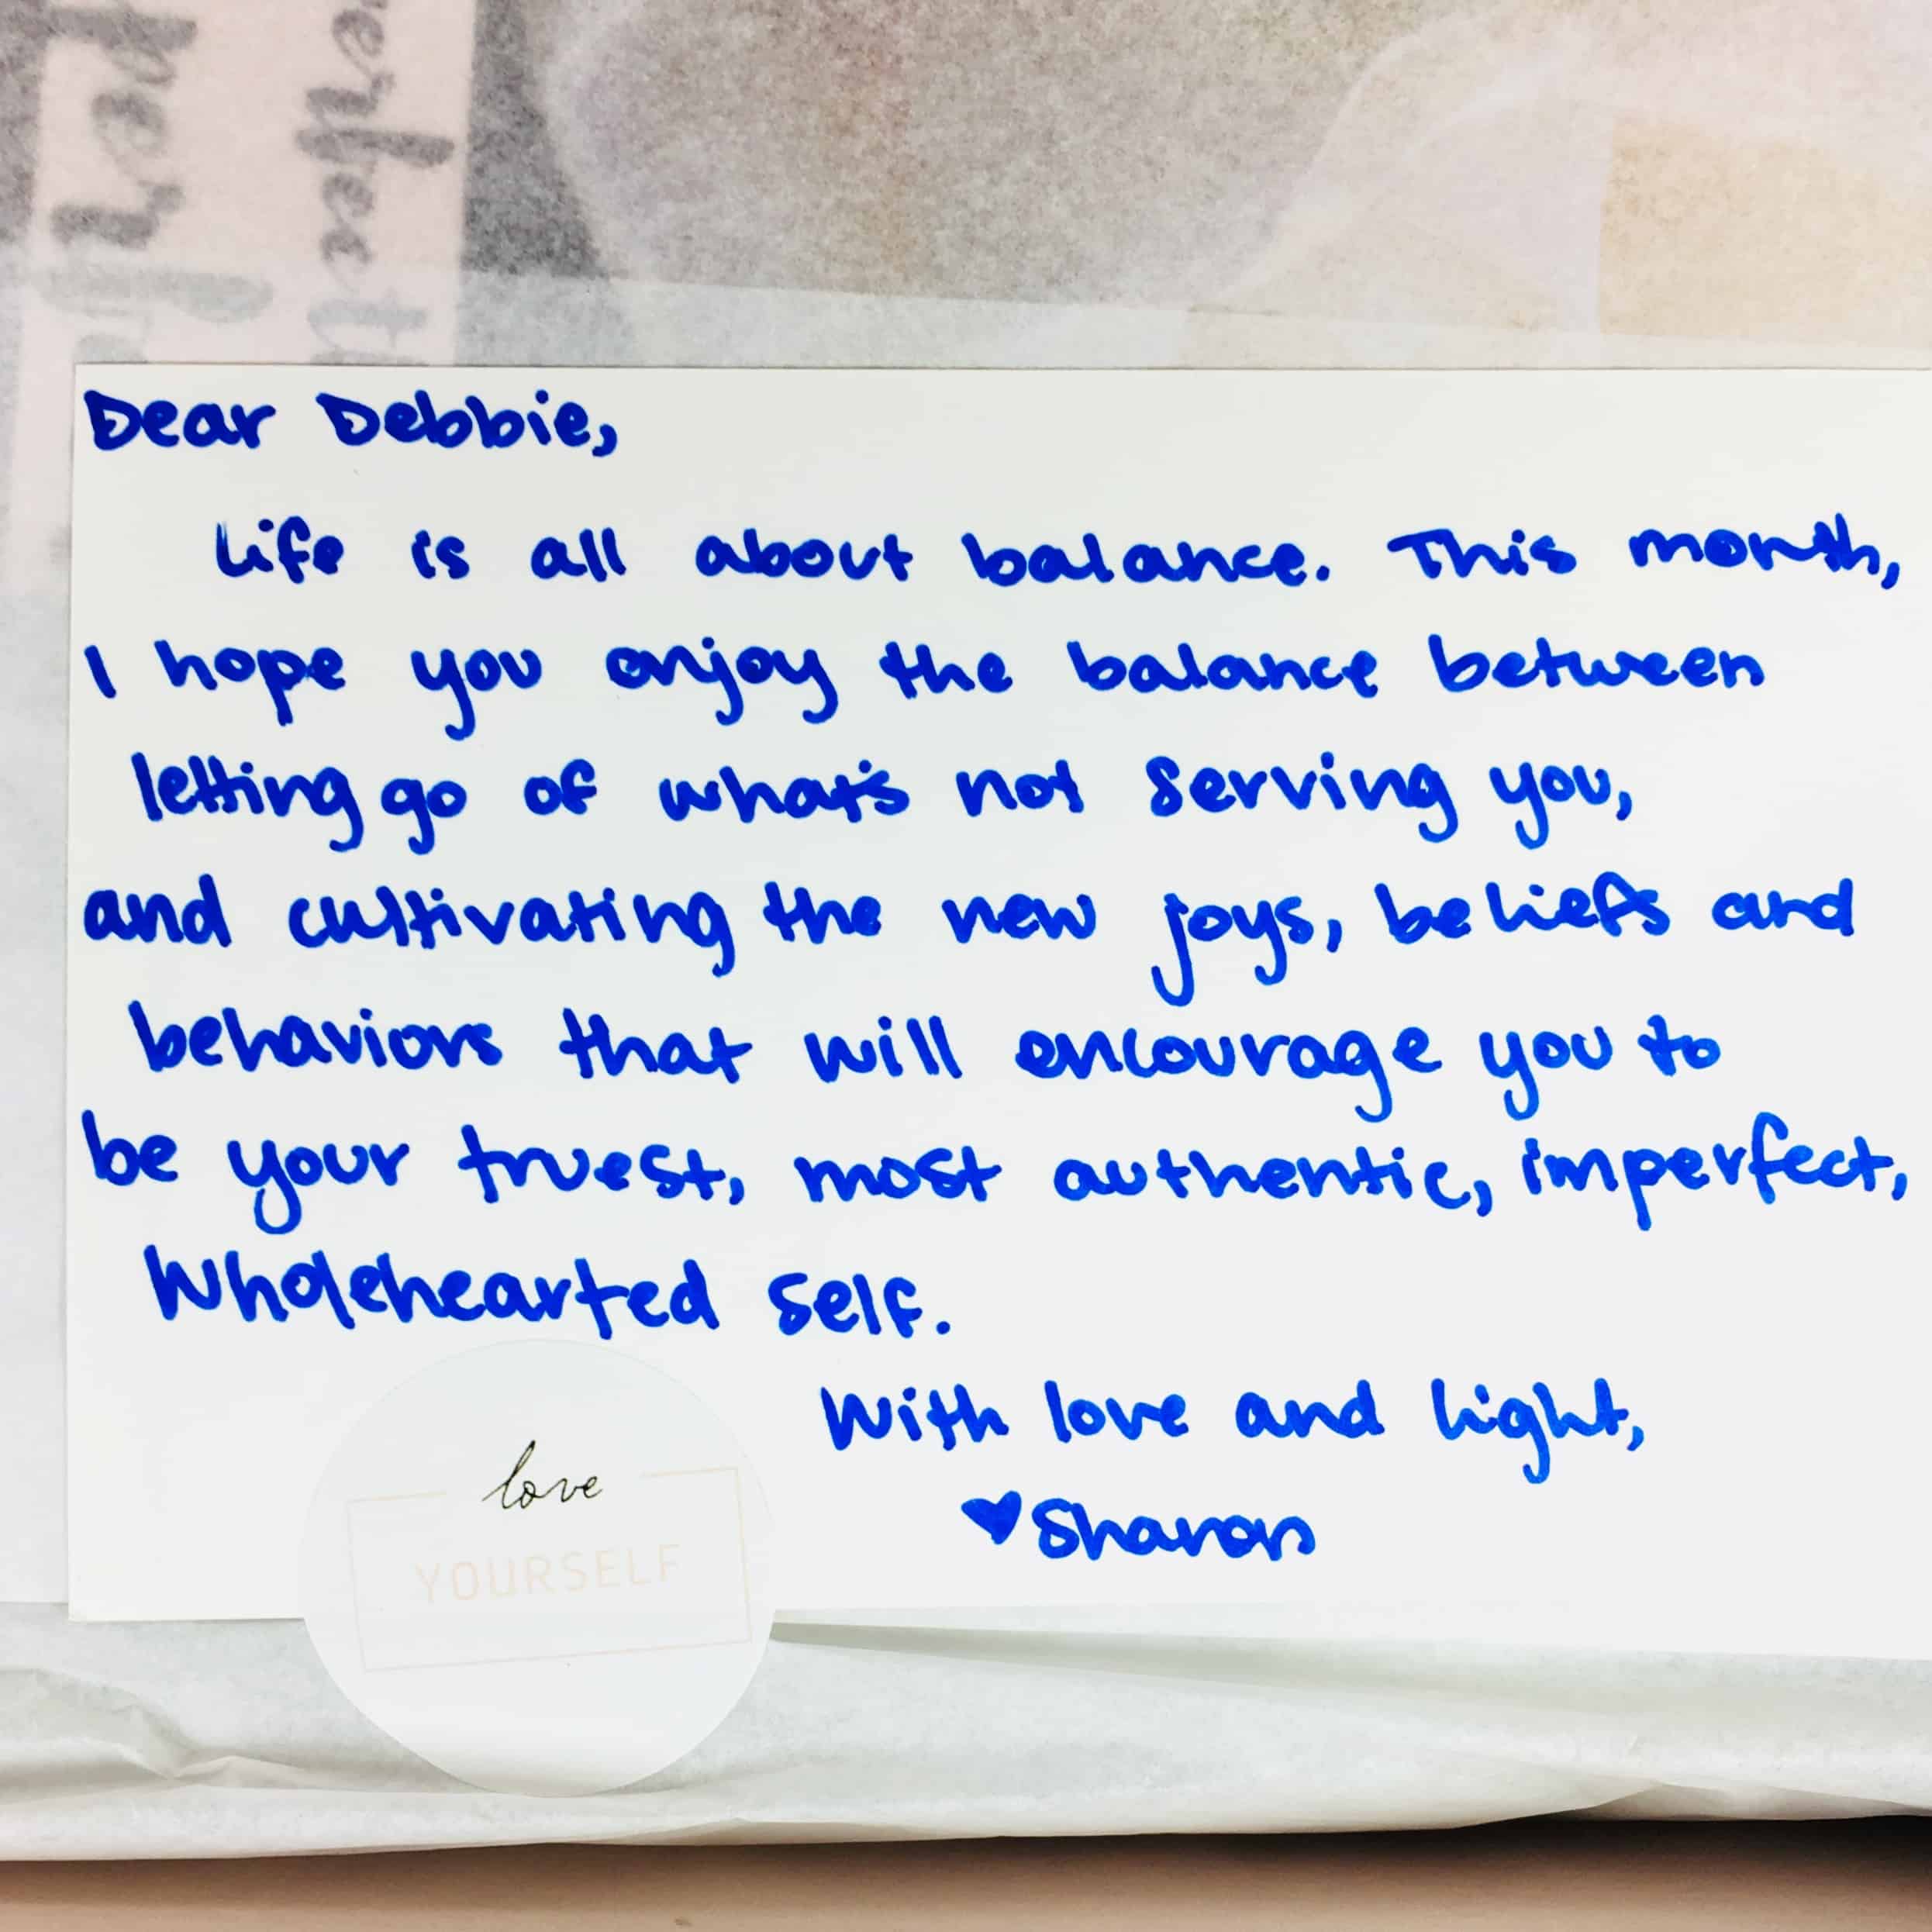 Dear Debbie,
Life is all about balance. This month,
I hope you enjoy the balance between
letting go of what's not serving you,
and cultivating the new joys, beliefs and
behaviors that will encourage you to
be your truest, most authentic, imperfect,
Wholehearted self.
With love and light,
♥Sharon
love
YOURSELF